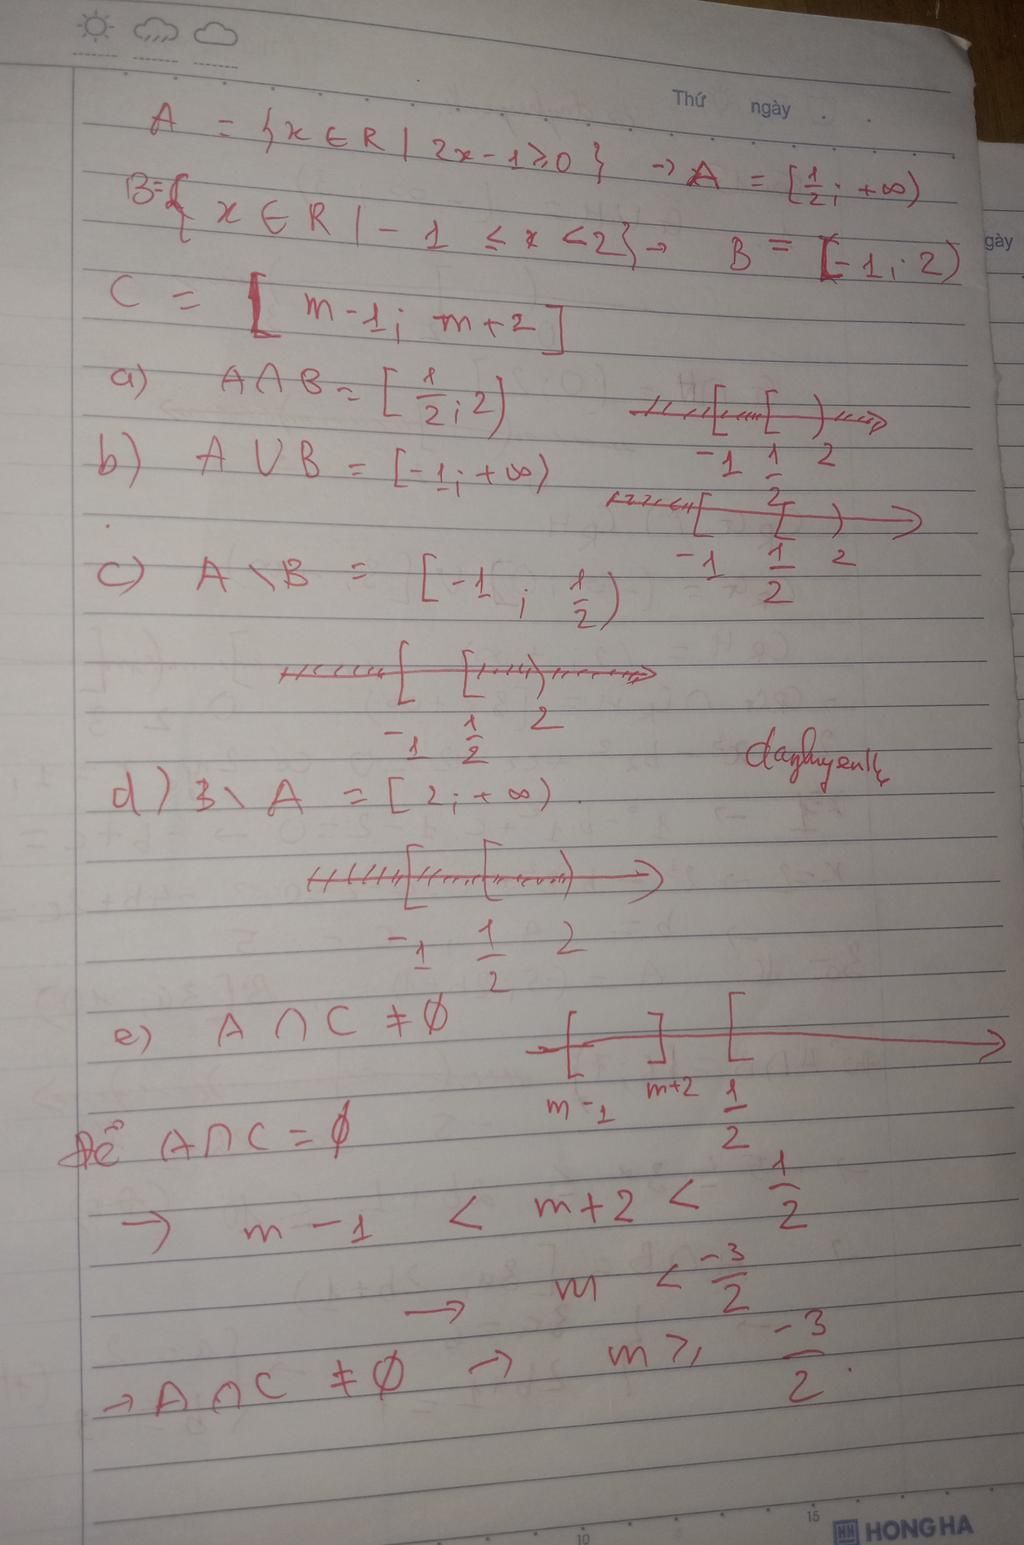 Thứ ngày
A = {x ∈ R | 2x-1 ≥ 0} → A = [1/2; +∞)
B = { x ∈ R | -1 ≤ x < 2} → B = [-1; 2)
gày
C = [ m-1; m+2 ]
a) A ∩ B = [1/2; 2)
-1 1/2 2
b) A ∪ B = [-1; +∞)
-1 1/2 2
c) A \ B = [-1; 1/2)
-1 1/2 2
d) B \ A = [2; +∞)
-1 1/2 2
e) A ∩ C ≠ ∅
m-1 m+2 1/2
Để A ∩ C = ∅
→ m - 1 < m+2 < 1/2
→ m < -3/2
→ A ∩ C ≠ ∅ → m ≥ -3/2.
10 15
HH HONG HA